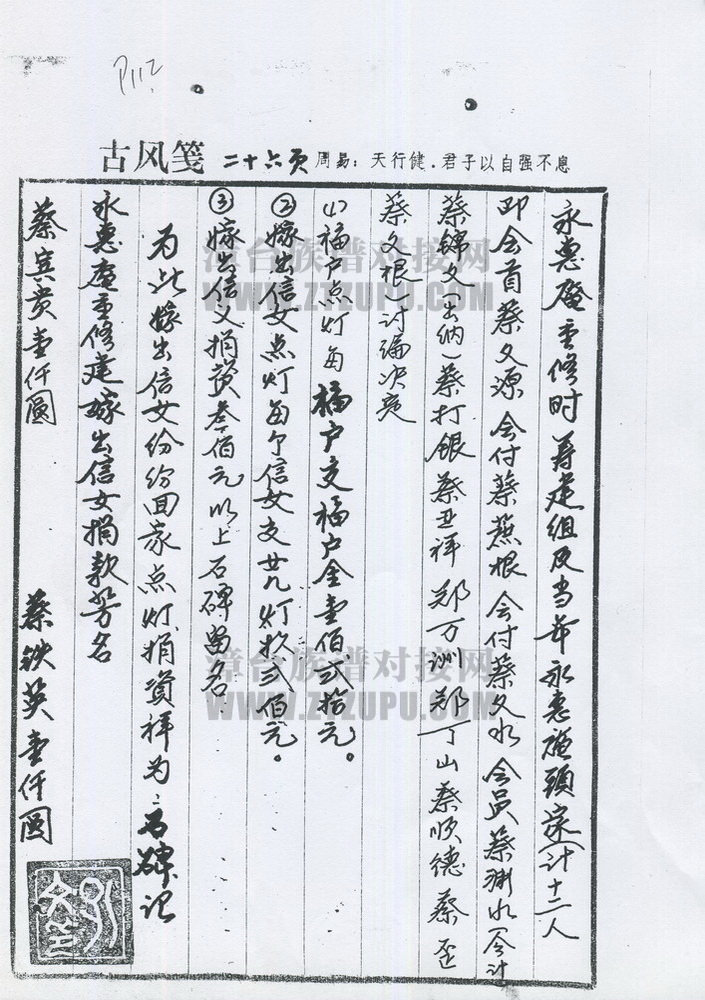 P112
古风笺 二十六页 周易：天行健．君子以自强不息
永惠庵重修时筹建组及当年永惠庵头家(计十二人
即会首蔡文源 会付蔡蕉根 会付蔡文水 会员蔡渊水(会计
蔡锦文(出纳)蔡打银 蔡丑祥 郑万洲 郑丁山 蔡顺德 蔡歪
蔡文根)讨编决竞
(1)福户点灯每福户交福户金壹佰贰拾元。
②嫁出信女点灯每个信女交 灯 贰佰元。
③嫁出信义捐资叁佰元以上石碑留名
为此嫁出信女份份回家点灯捐资祥为 碑记
永惠庵重修建嫁出信女捐款芳名
蔡宾贵壹仟圆 蔡铁英壹仟圆
漳台族谱对接网
WWW.ZTZUPU.COM
漳台族谱对接网
WWW.ZTZUPU.COM